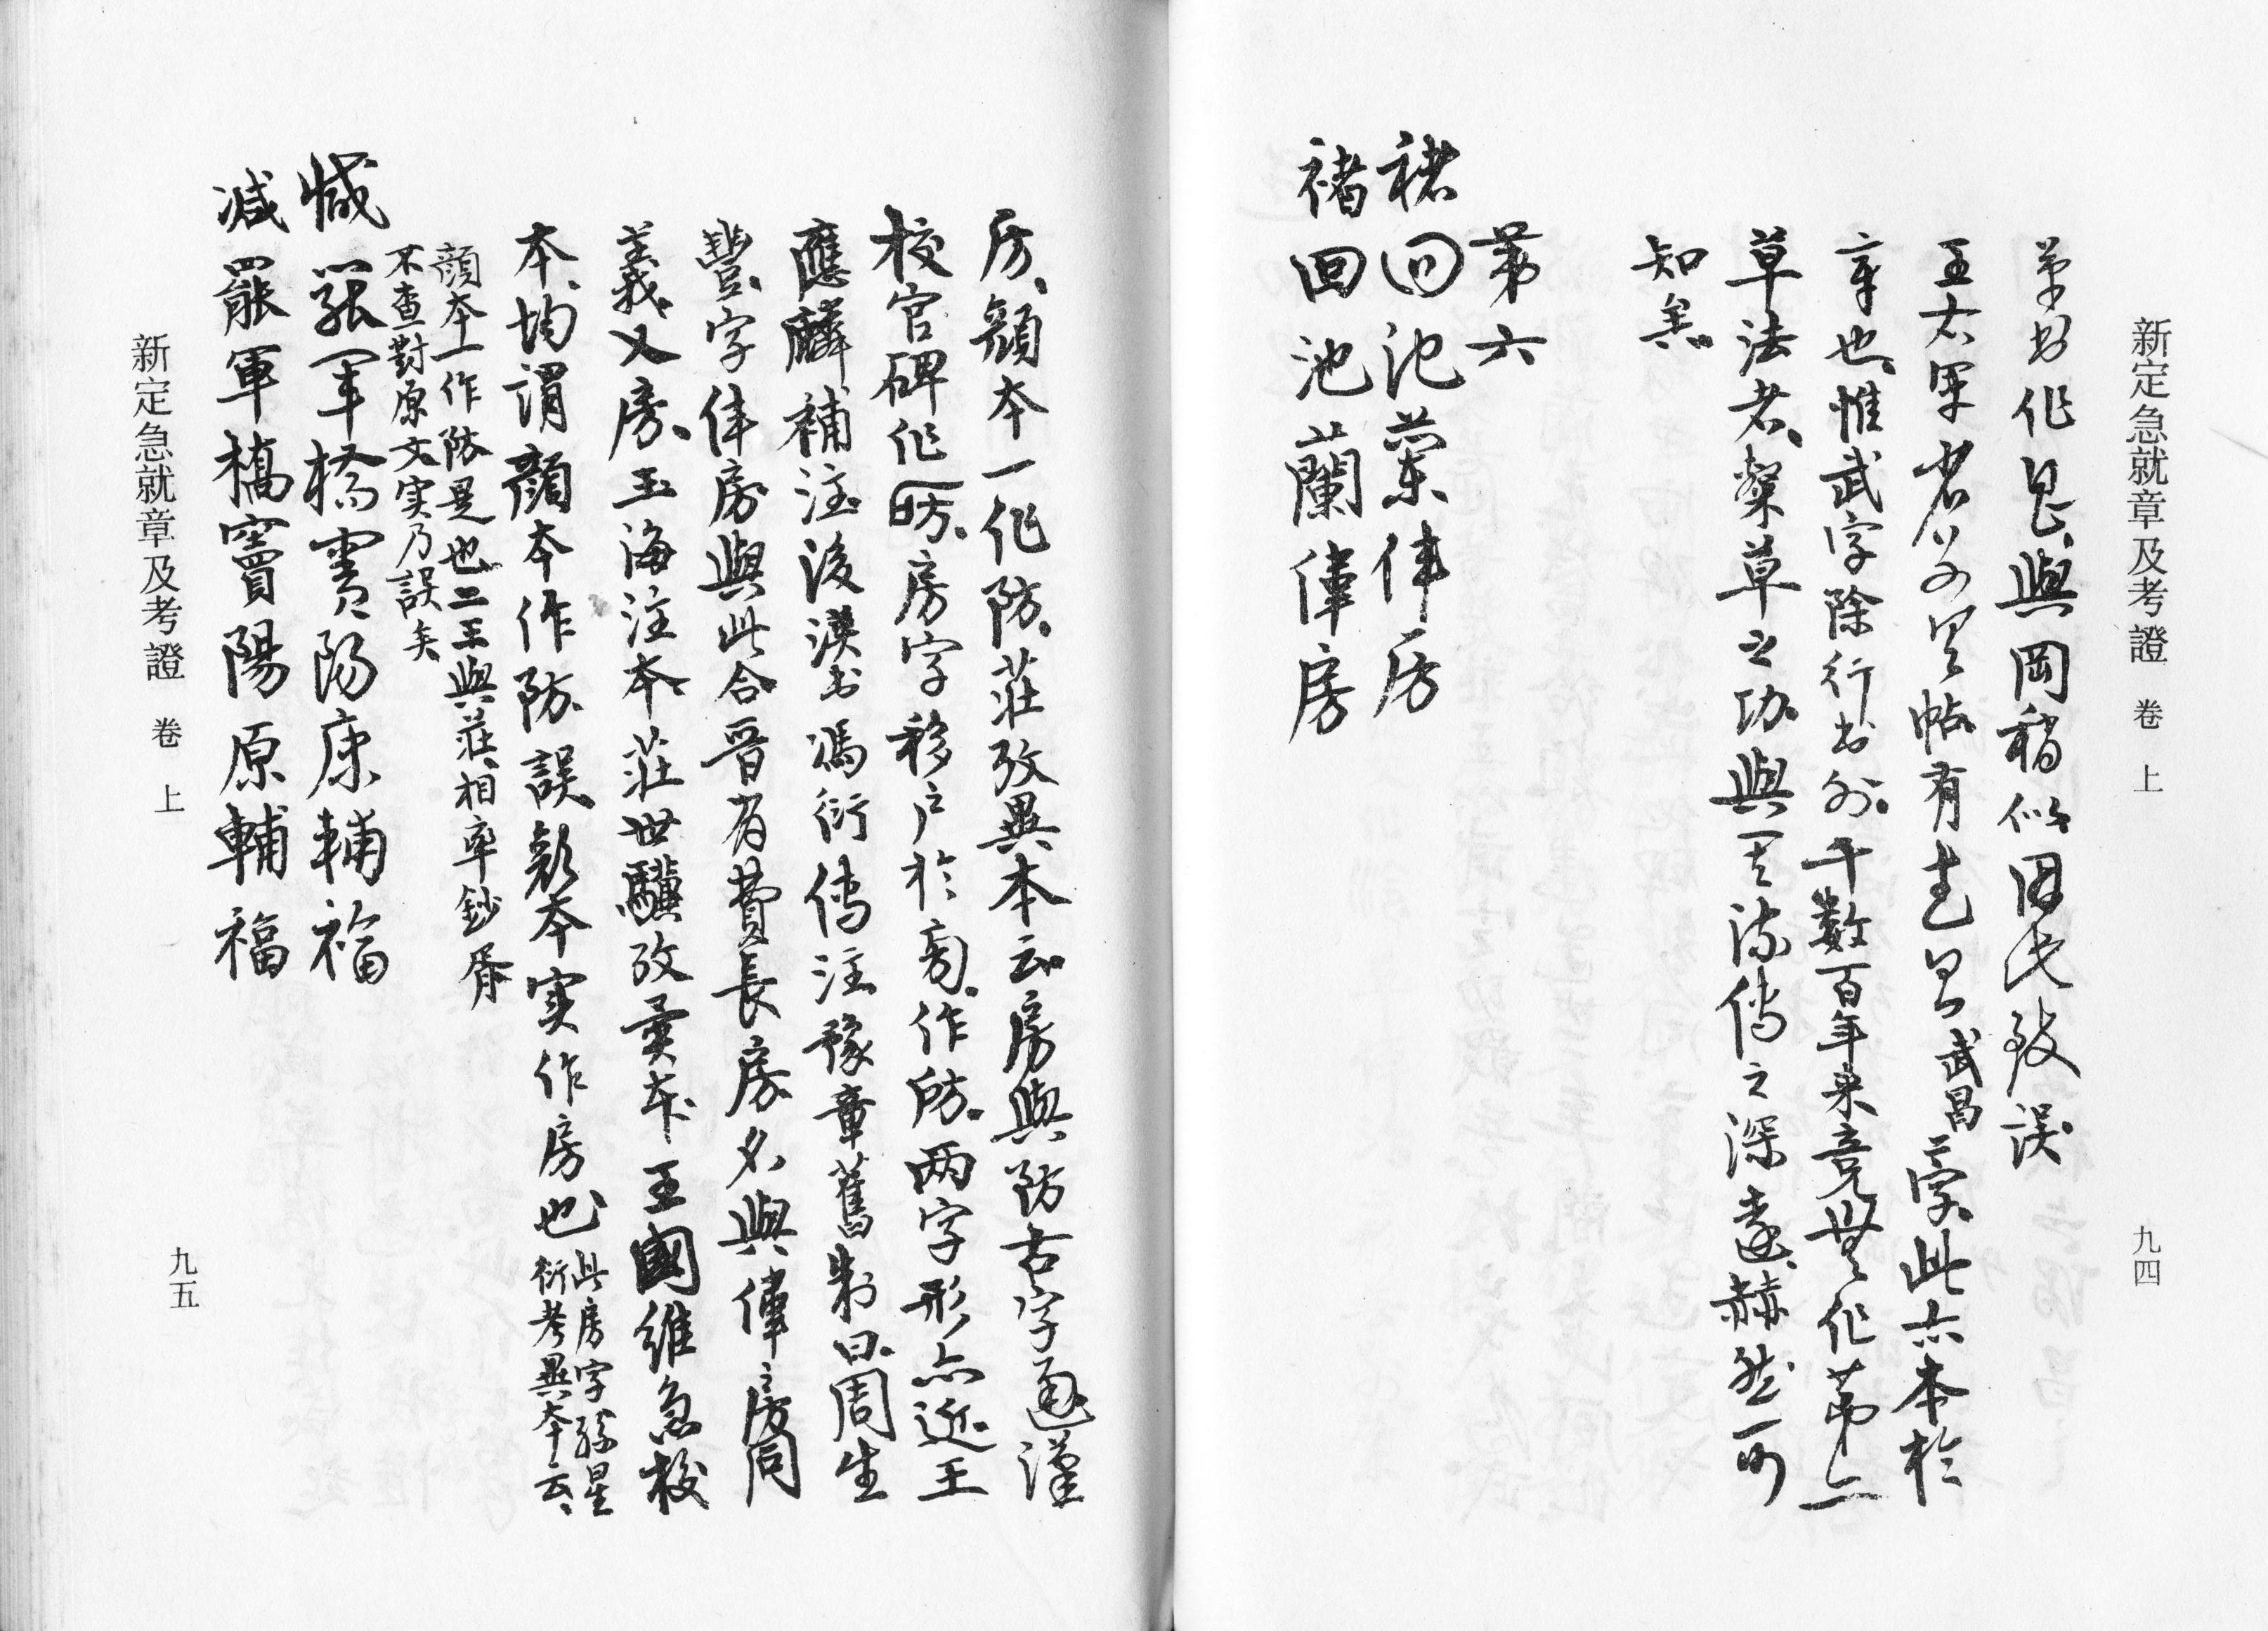 新定急就章及考證 卷上
九四
草书作㠯與岡稍似因此致误
王右軍
帖有
武昌
字此六本於
章也惟武字除行书外千數百年来竟無作
草法者粲草之功與
流傳之深遠赫然可
知矣
第六
褚回池蘭偉房
褚回池蘭偉房
房顔本一作防莊攷異本云房與防古字通漢
校官碑作
房字移户於
作防两字形亦近王
應麟補注後漢书馮衍傳注豫章舊
曰周生
豐字偉房與此合晋有費長房名與偉房同
義又房玉海注本莊世驥攷異本王國維急校
本均謂顔本作防誤
本实作房也
此房字孫星
衍考異本云
顔本一作防是也二王與莊相率鈔胥
不查對原文实乃誤矣
減罷軍橋竇陽原輔福
減罷軍橋竇陽原輔福
新定急就章及考證 卷上
九五